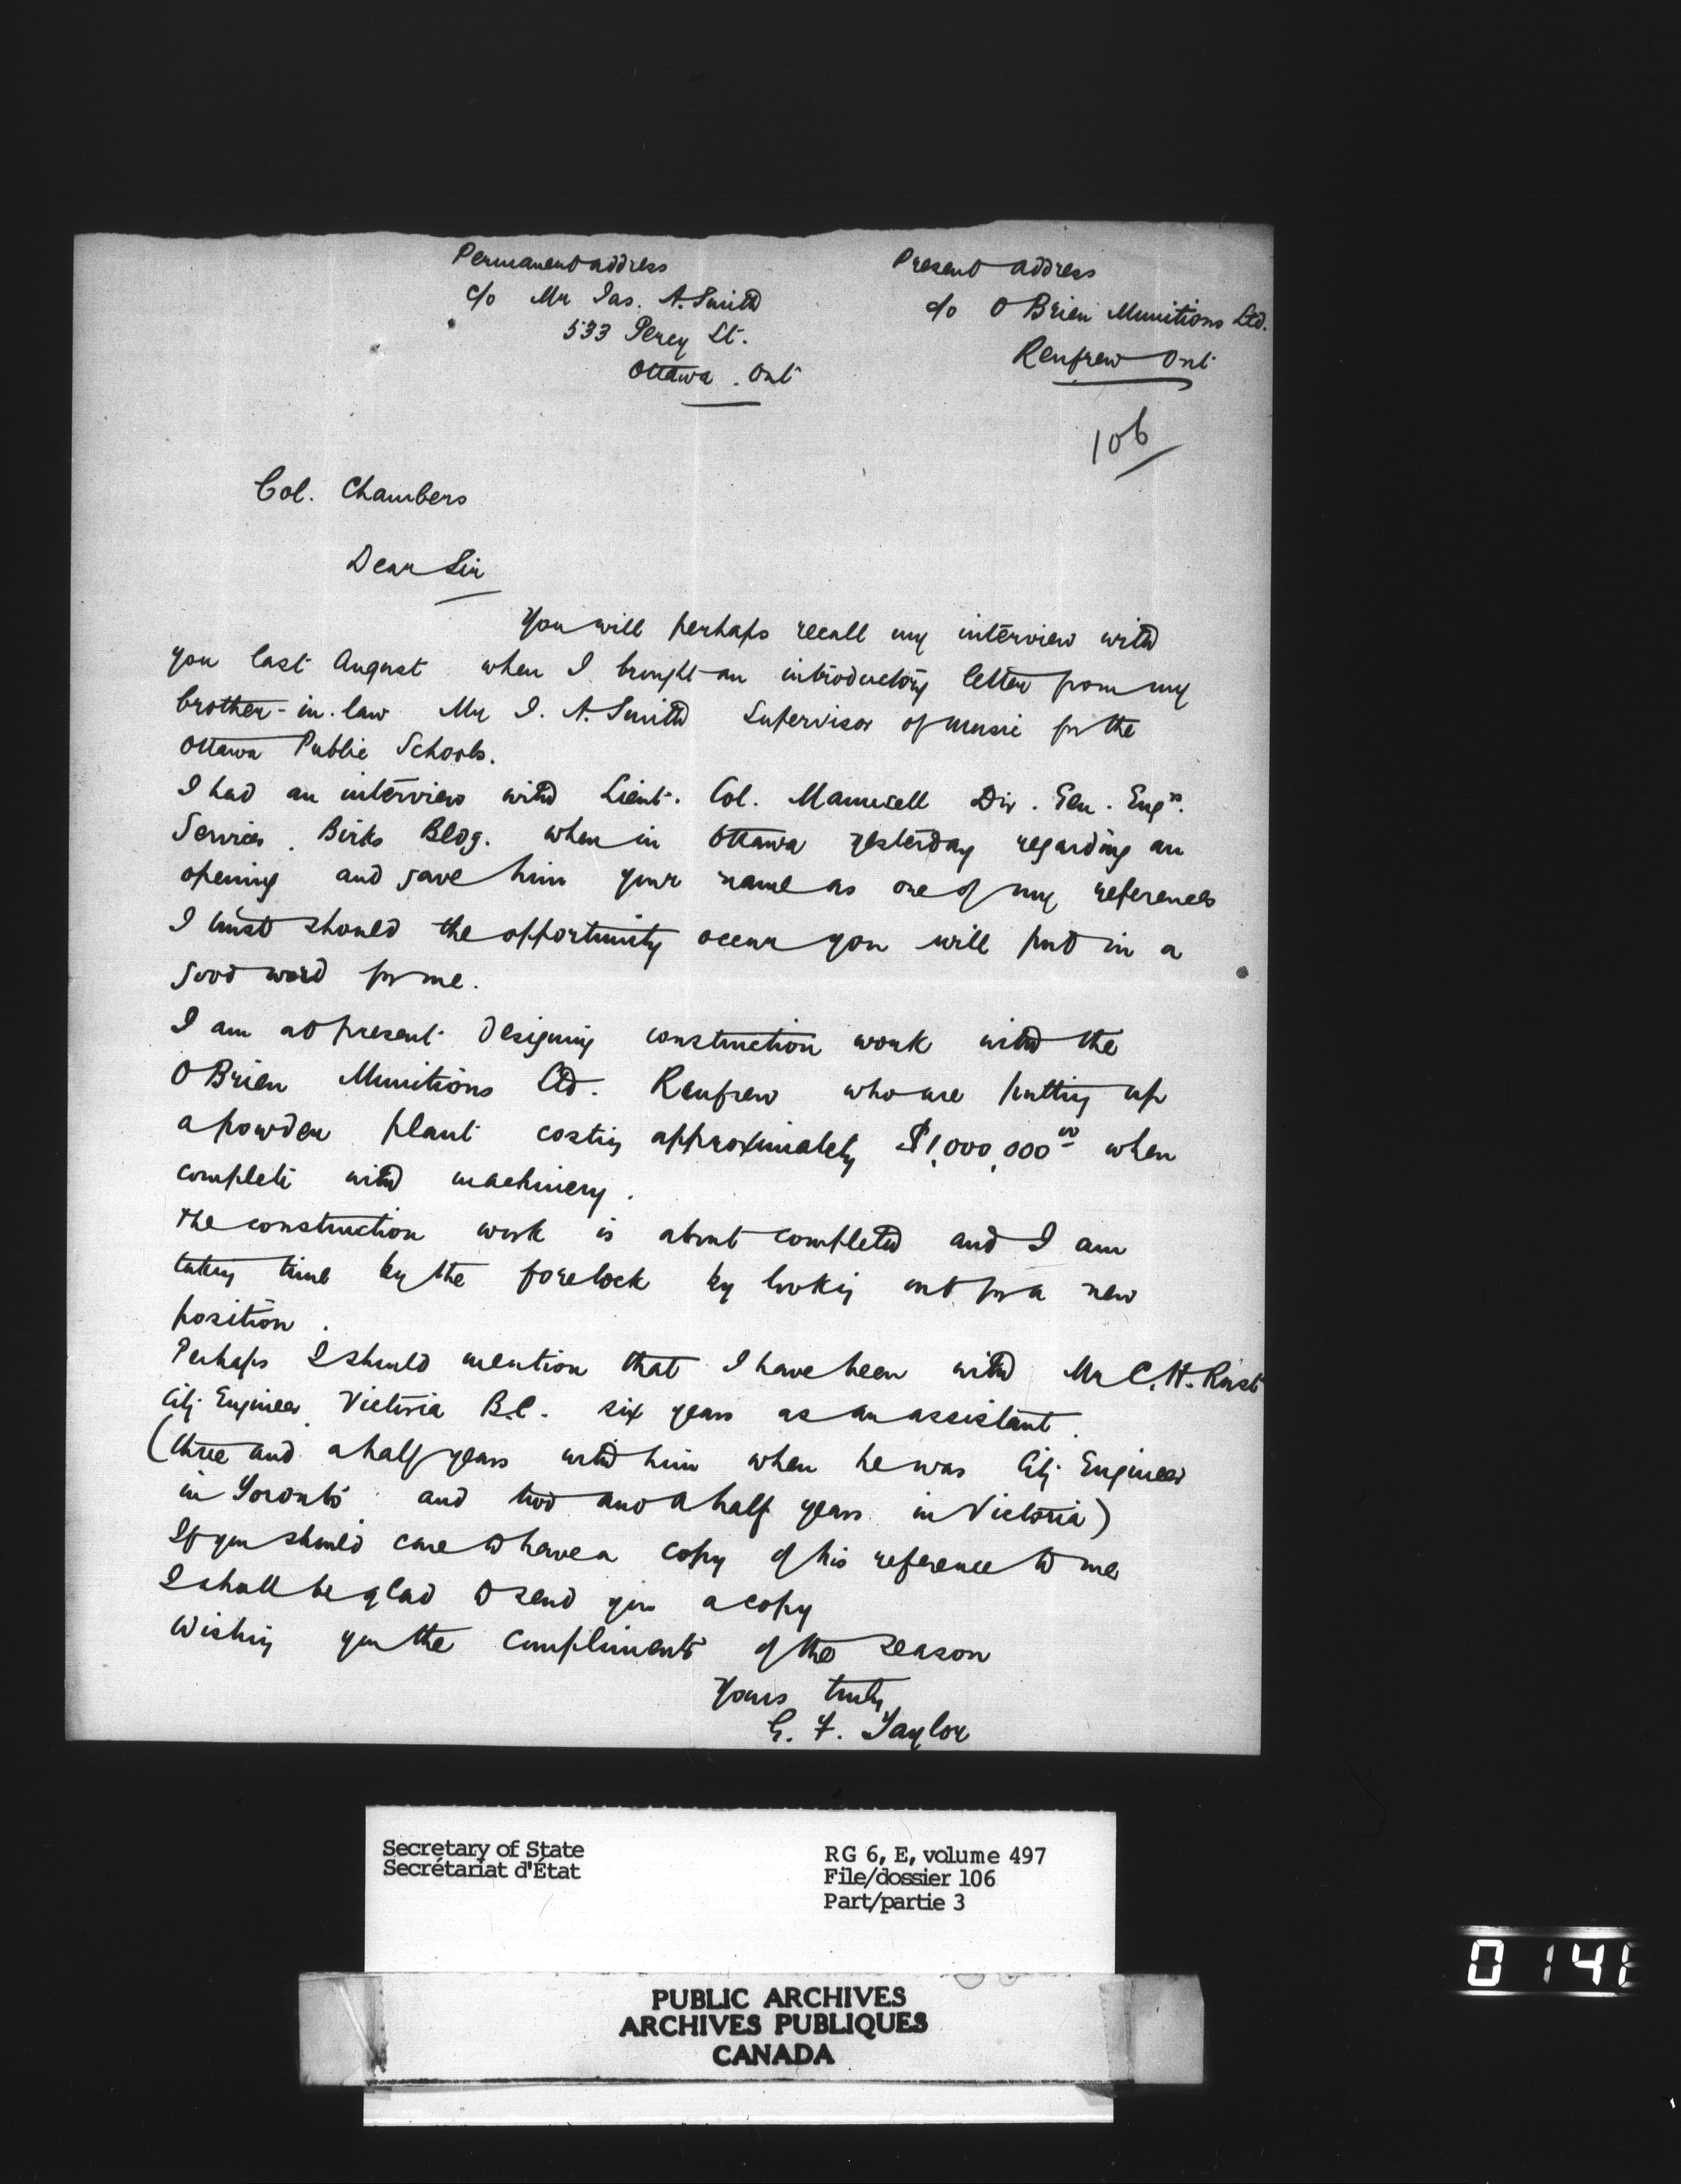 Permanent address
c/o Mr Jas. A. Smith
533 Percy St.
Ottawa . Ont
Present address
c/o O Brien Munitions Ltd.
Renfrew Ont
106
Col. Chambers
Dear Sir
You will perhaps recall my interview with
you last August when I brought an introductory letter from my
brother-in-law Mr J. A. Smith Supervisor of Music for the
Ottawa Public Schools.
I had an interview with Lieut. Col. Maunsell Dir. Gen. Engrs.
Services. Birks Bldg. when in Ottawa yesterday regarding an
opening and gave him your name as one of my references
I trust should the opportunity occur you will put in a
good word for me.
I am at present designing construction work with the
O Brien Munitions Ltd. Renfrew who are putting up
a powder plant costing approximately $1,000,000 00 when
complete with machinery.
The construction work is about completed and I am
taking time by the forelock by looking out for a new
position.
Perhaps I should mention that I have been with Mr C. H. Rust
City Engineer Victoria B.C. six years as an assistant.
(three and a half years with him when he was City Engineer
in Toronto and two and a half years in Victoria)
If you should care to have a copy of his reference to me
I shall be glad to send you a copy
Wishing you the compliments of the season
Yours truly
G. F. Taylor
Secretary of State
Secrétariat d'État
RG 6, E, volume 497
File/dossier 106
Part/partie 3
PUBLIC ARCHIVES
ARCHIVES PUBLIQUES
CANADA
0141